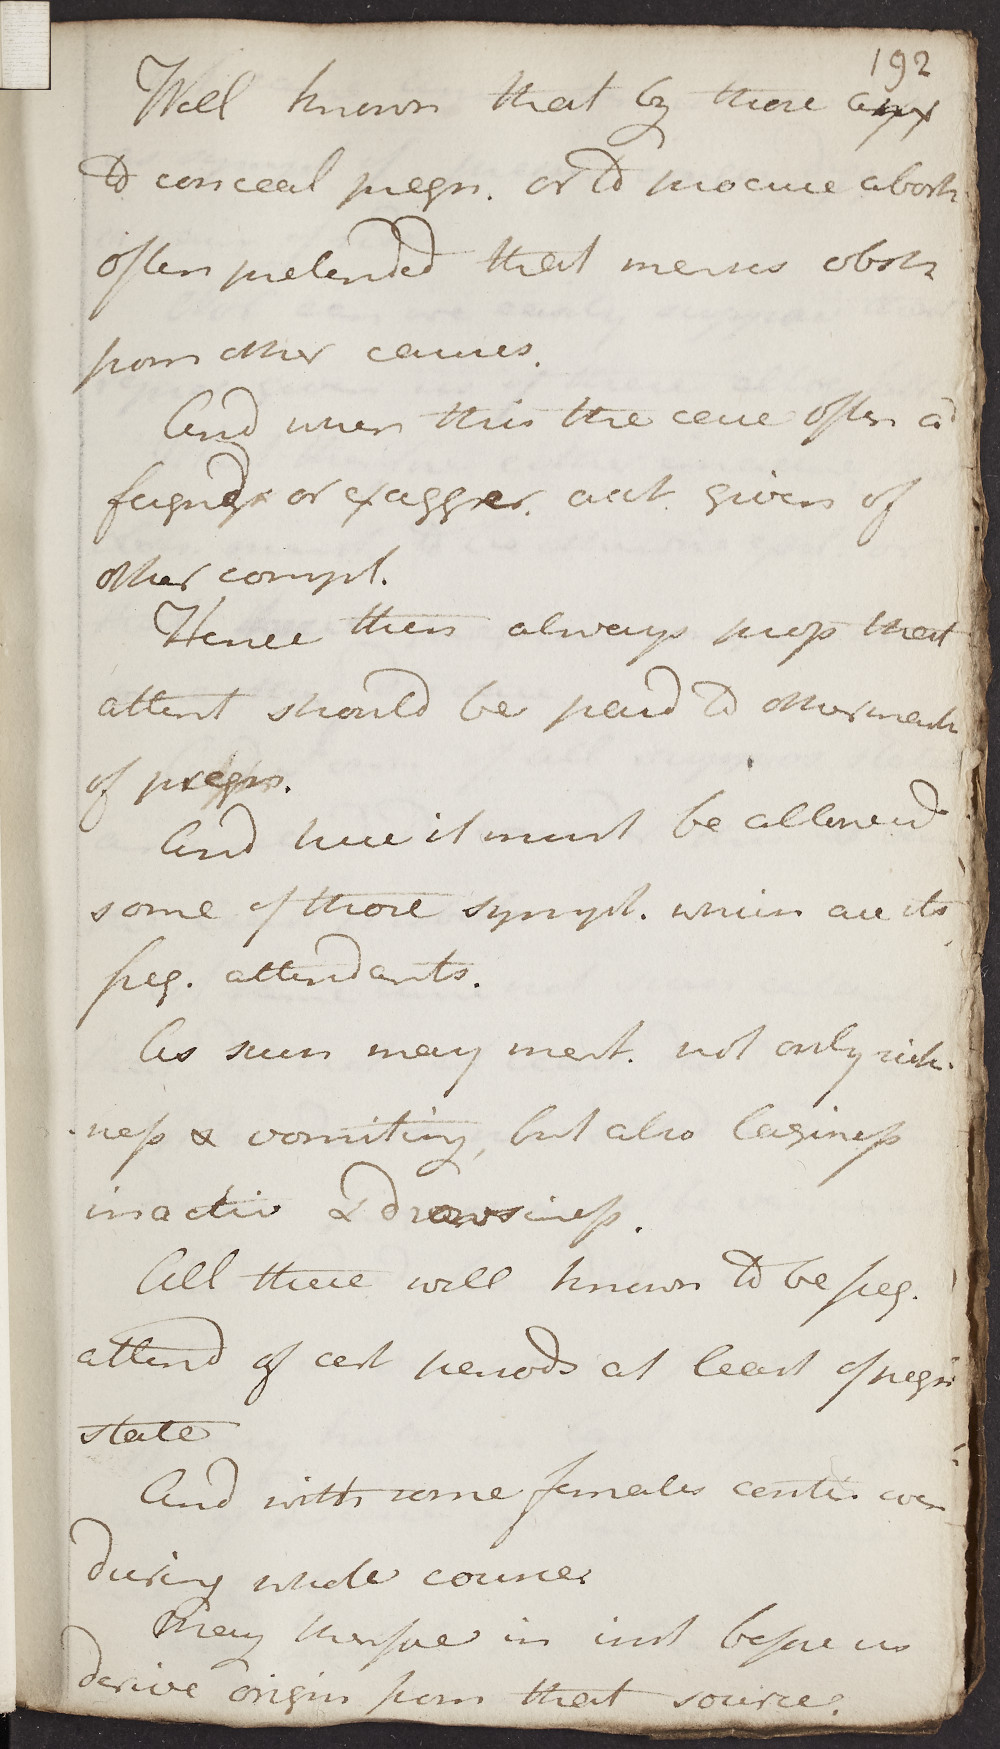 192
Well known that by those anx
to conceal pregn. or to procure abort
often pretended that menses obstr
from other causes.
And when this the case often a
feigned or exagger. acct. given of
other compl.
Hence then always prop that
attent should be paid to other mark
of pregn.
And here it must be allowed
some of those sympt. which are its
freq. attendants.
As such may ment. not only sick-
ness & vomiting, but also laziness
inactiv & drowsiness.
All these well known to be freq.
attend of cert periods at least of pregn
state
And with some females contin. even
during whole course
May therefore in inst before us
derive origin from that source.